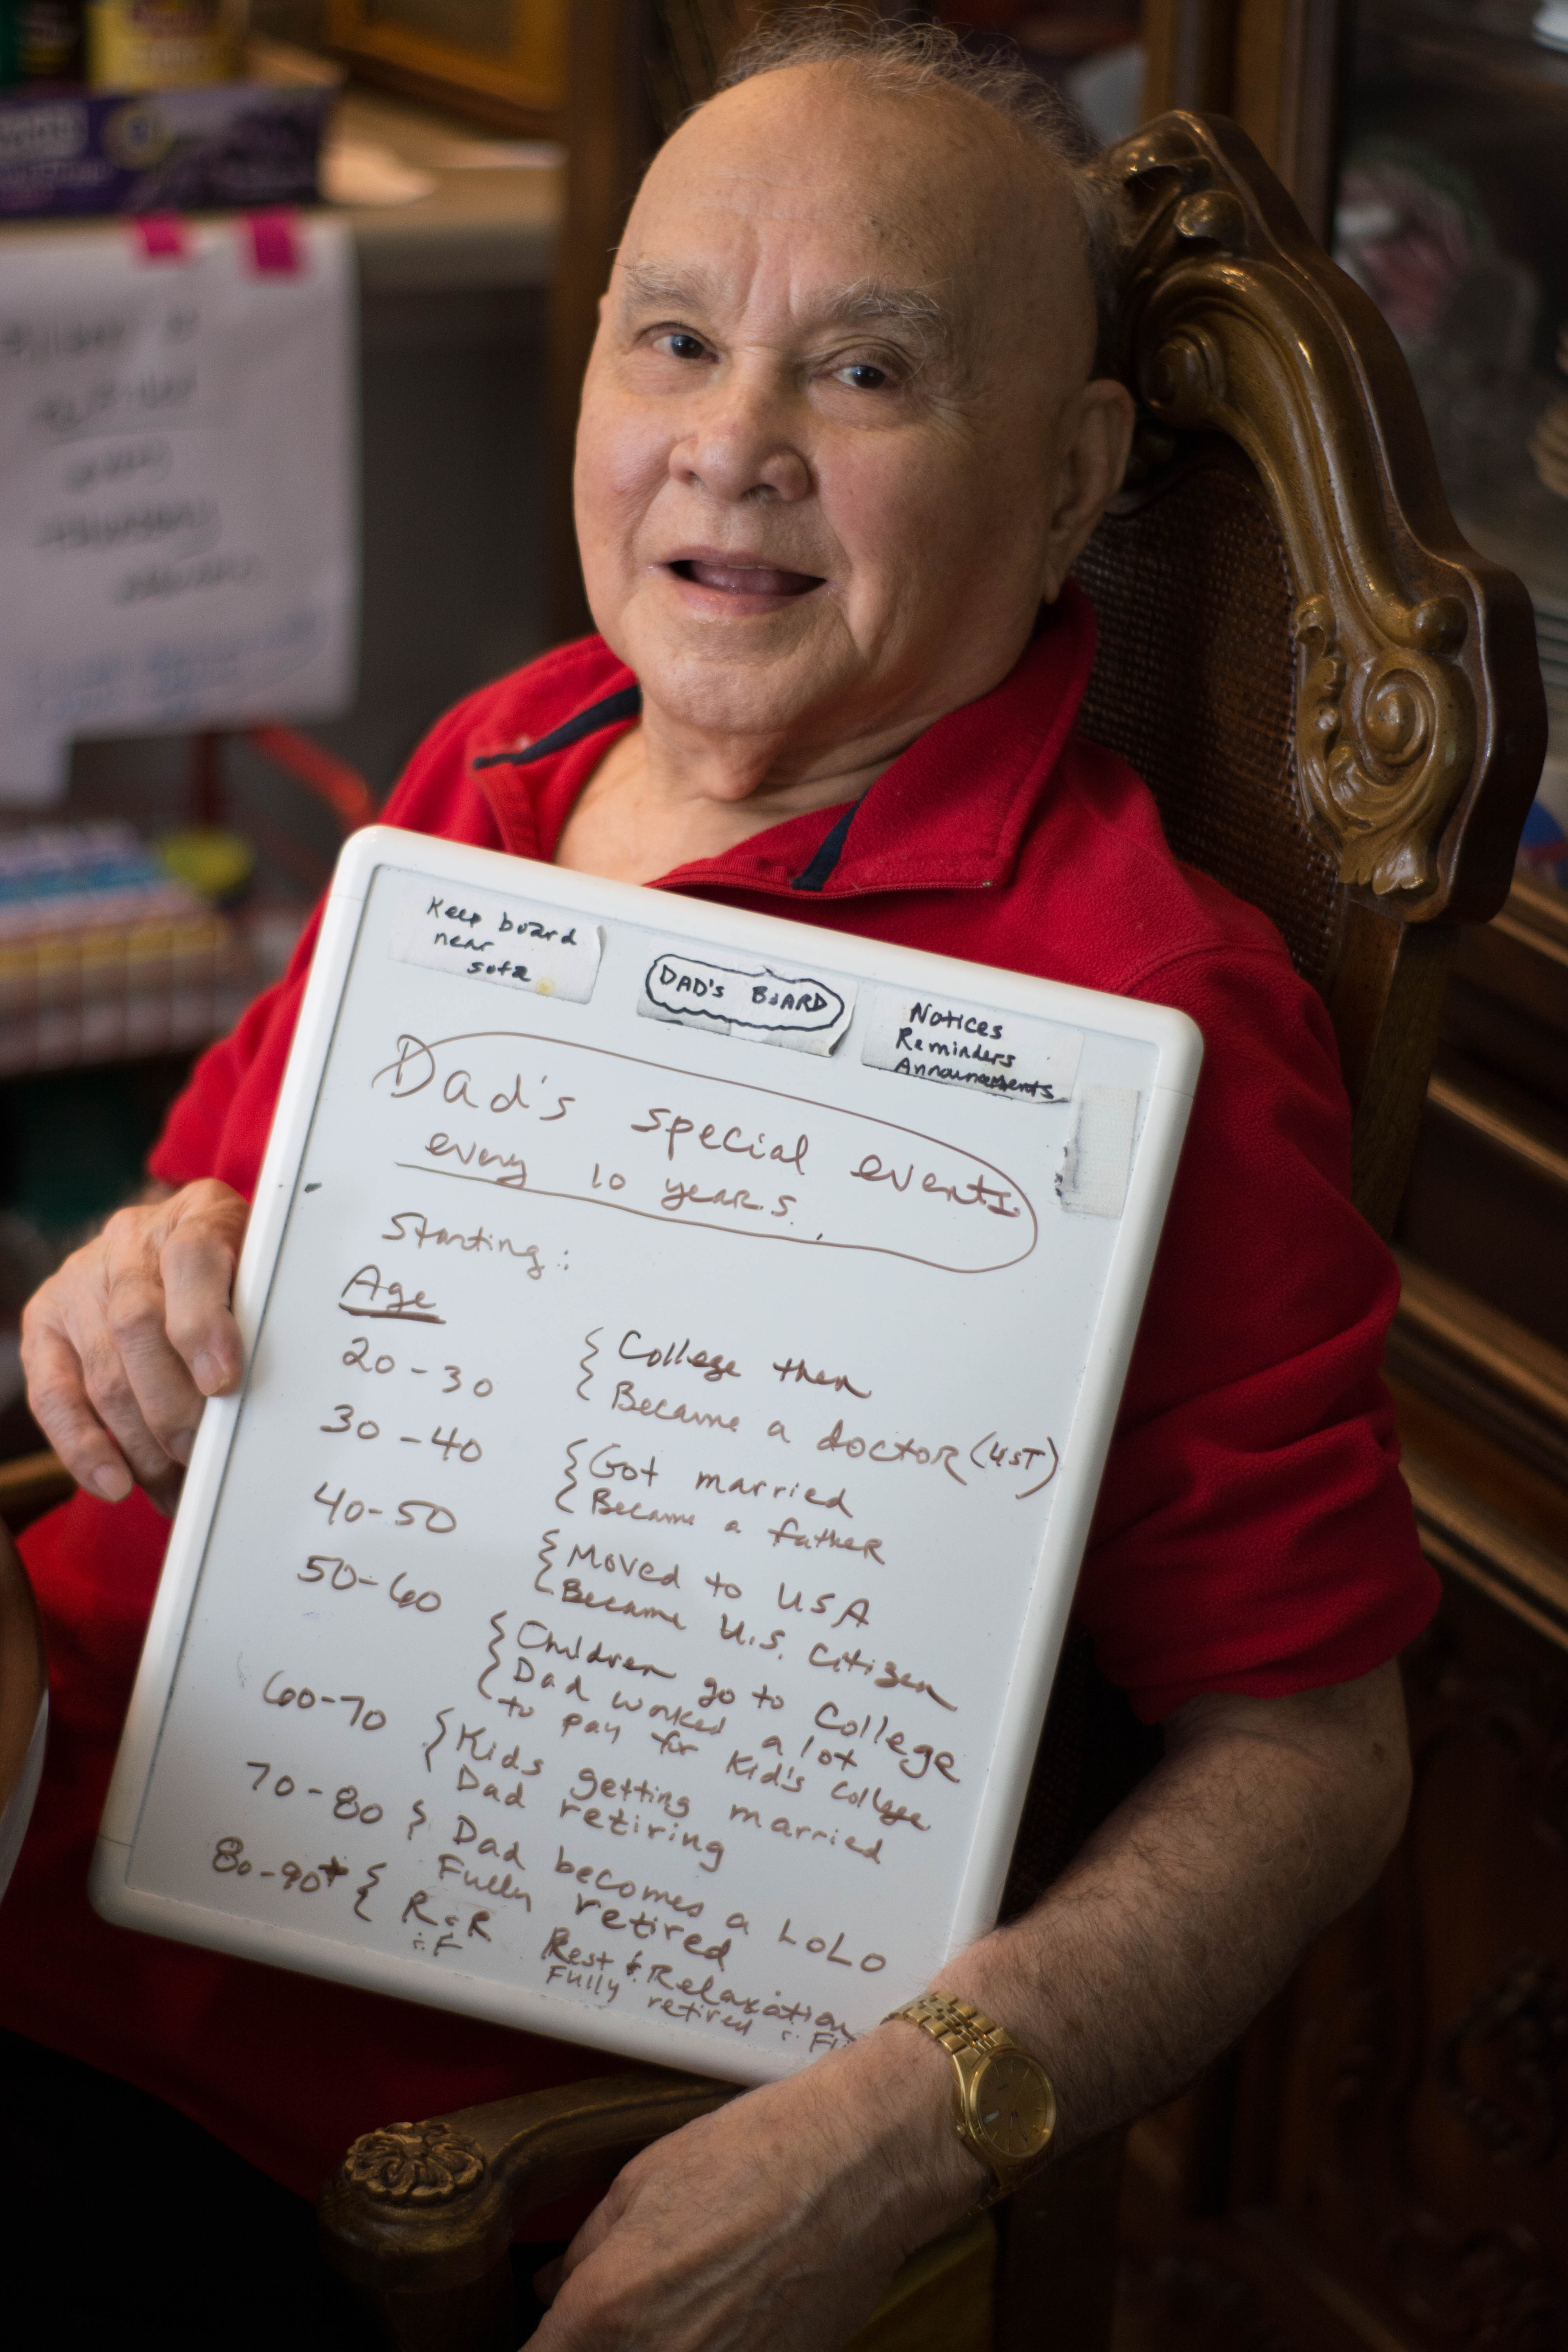 Keep board
near
sofa
DAD'S BOARD
Notices
Reminders
Announcements
Dad's special events
every 10 years.
Starting:
Age
20-30 { College then
Became a doctor (UST)
30-40 { Got married
Became a father
40-50 { Moved to USA
Became U.S. Citizen
50-60 { Children go to College
Dad worked a lot
to pay for Kid's College
60-70 { Kids getting married
Dad retiring
70-80 } Dad becomes a LoLo
Fully retired
80-90+ { R & R Rest & Relaxation
Fully retired